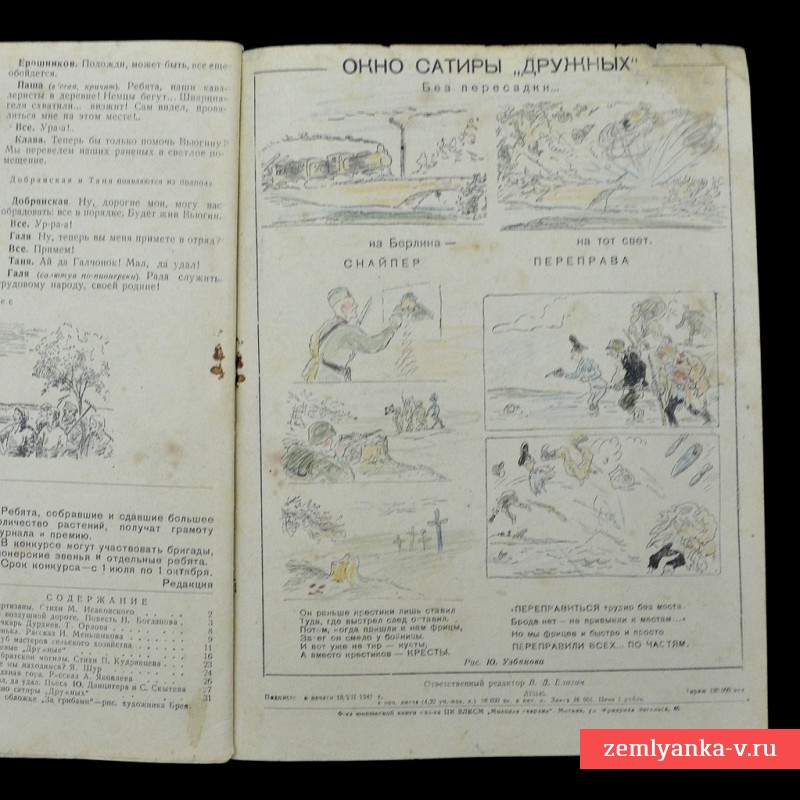 Ерошников. Положди, может быть, все еще
обойдется.
Паша (вбегая, кричит). Ребята, наши кава-
леристы в деревне! Немцы бегут...
теля схватили... визжит! Сам видел, прова-
литься мне на этом месте!..
Все. Ура-а!.
Клава. Теперь бы только помочь Вьюгину?
Мы перевелем наших раненых в светлое по-
мещение.
Добрянская и Таня появляются из
Добрянская. Ну, дорогие мои, могу вас
обрадовать: все в порядке. Будет жив Вьюгин.
Все. Ур-ра-а!
Галя Ну, теперь вы меня примете в отряд?
Все. Примем!
Таня. Ай да Галчонок! Мал, да удал!
Галя (салютуя по-пионерски). Рада служить
трудовому народу, своей родине!
Ребята, собравшие и сдавшие большее
количество растений, получат грамоту
журнала и премию.
В конкурсе могут участвовать бригады,
пионерские звенья и отдельные ребята.
Срок конкурса—с 1 июля по 1 октября.
Редакция
СОДЕРЖАНИЕ
Стихи М. Исаковского . . . 2
воздушной дороге. Повесть Н. Богданова . 3
Дурдиев, Т. Орлова . . . 8
Рассказ И. Меньшикова . . . 9
мастеров сельского хозяйства . . . 11
"Дружные" . . . 16
братской могилы. Стихи П. Кудрявцева . . 23
мы находимся? Я. Шур . . . 24
гора. Рассказ А. Яковлева . . . 25
да удал. Пьеса Ю. Данцигера и С. 27
Окно сатиры "Дружных" . . . 31
обложке "За грибами"—рис. художника
ОКНО САТИРЫ „ДРУЖНЫХ"
Без пересадки...
из Берлина—
на тот свет.
СНАЙПЕР
ПЕРЕПРАВА
Он раньше крестики лишь ставил
Туда, где выстрел след оставил.
Потом, когда пришли к нам фрицы,
Засел он смело у бойницы.
И вот уже не тир — кусты,
А вместо крестиков — КРЕСТЫ.
«ПЕРЕПРАВИТЬСЯ трудно без моста.
Брода нет — не привыкли к местам...»
Но мы фрицев и быстро и просто
ПЕРЕПРАВИЛИ ВСЕХ... ПО ЧАСТЯМ.
Рис. Ю. Узбякова
Ответственный редактор
Цена 1 рубль.
ЦК ВЛКСМ „Молодая гвардия". Москва,
zemlyanka-v.ru